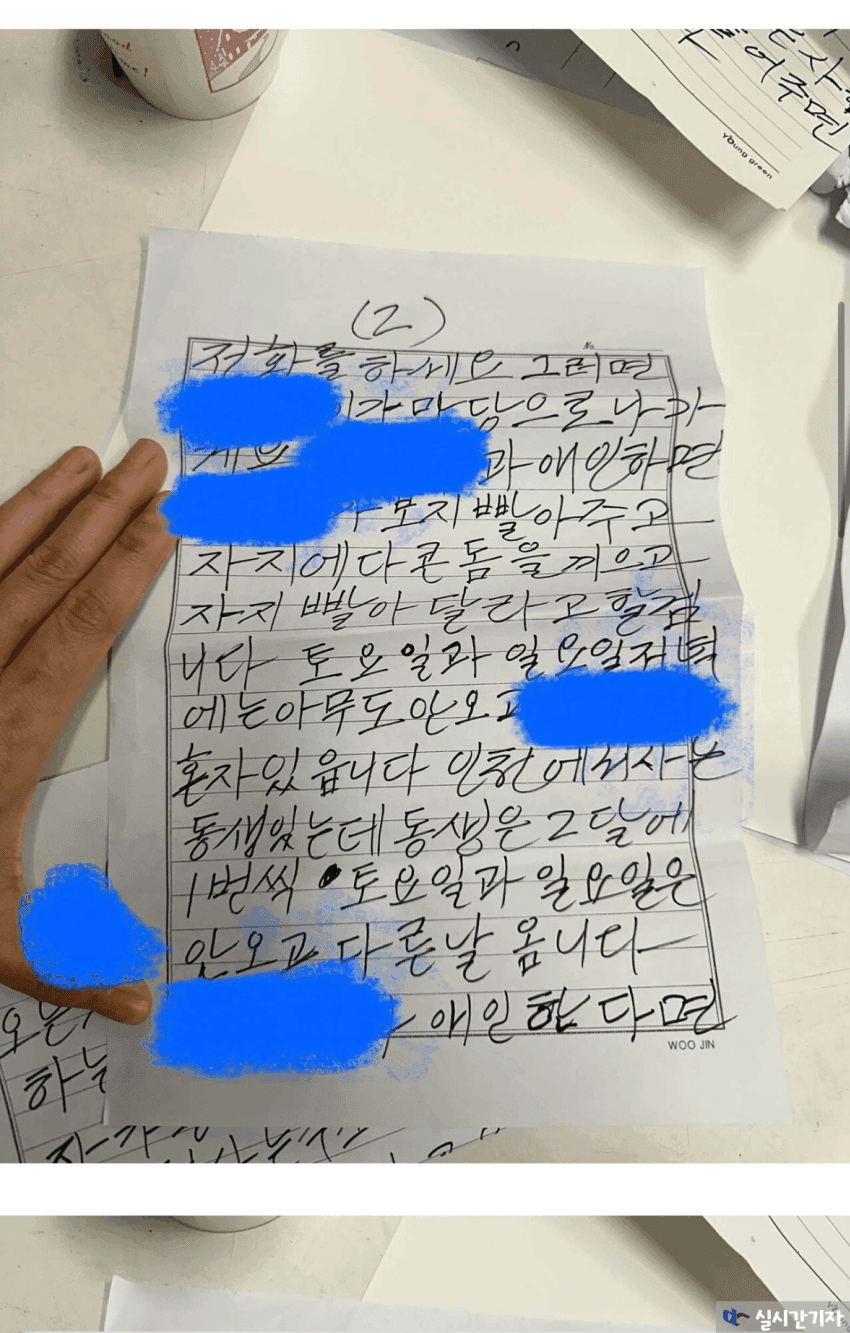 어주면
young green
(2)
No.
전화를 하세요 그러면
가 마담으로 나가
과 애인하면
보지 빨아주고
자지에다 콘돔을 끼우고
자지 빨아 달라고 할겁
니다 토요일과 일요일저녁
에는 아무도 안오고
혼자 있읍니다 인천에서 사는
동생있는데 동생은 2달에
1번씩 토요일과 일요일은
안오고 다른날 옵니다
애인 한다면
WOO JIN
하는
실시간기자